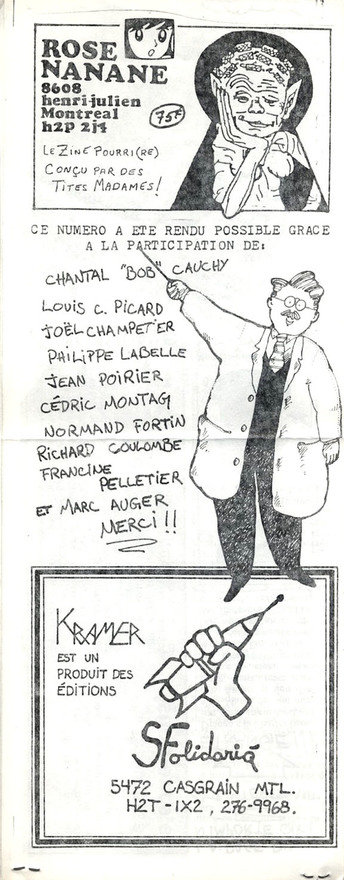 ROSE
NANANE
8608
henri-julien
Montreal
h2p 2j4
75¢
LE ZINE POURRI(RE)
CONÇU PAR DES
TITES MADAMES!
CE NUMERO A ETE RENDU POSSIBLE GRACE
A LA PARTICIPATION DE:
CHANTAL "BOB" CAUCHY
LOUIS C. PICARD
JOËL CHAMPETIER
PHILIPPE LABELLE
JEAN POIRIER
CÉDRIC MONTAG
NORMAND FORTIN
RICHARD COULOMBE
FRANCINE
PELLETIER
ET MARC AUGER
MERCI!!
KRAMER
EST UN
PRODUIT DES
ÉDITIONS
SFolidarią
5472 CASGRAIN MTL.
H2T-1X2, 276-9968.